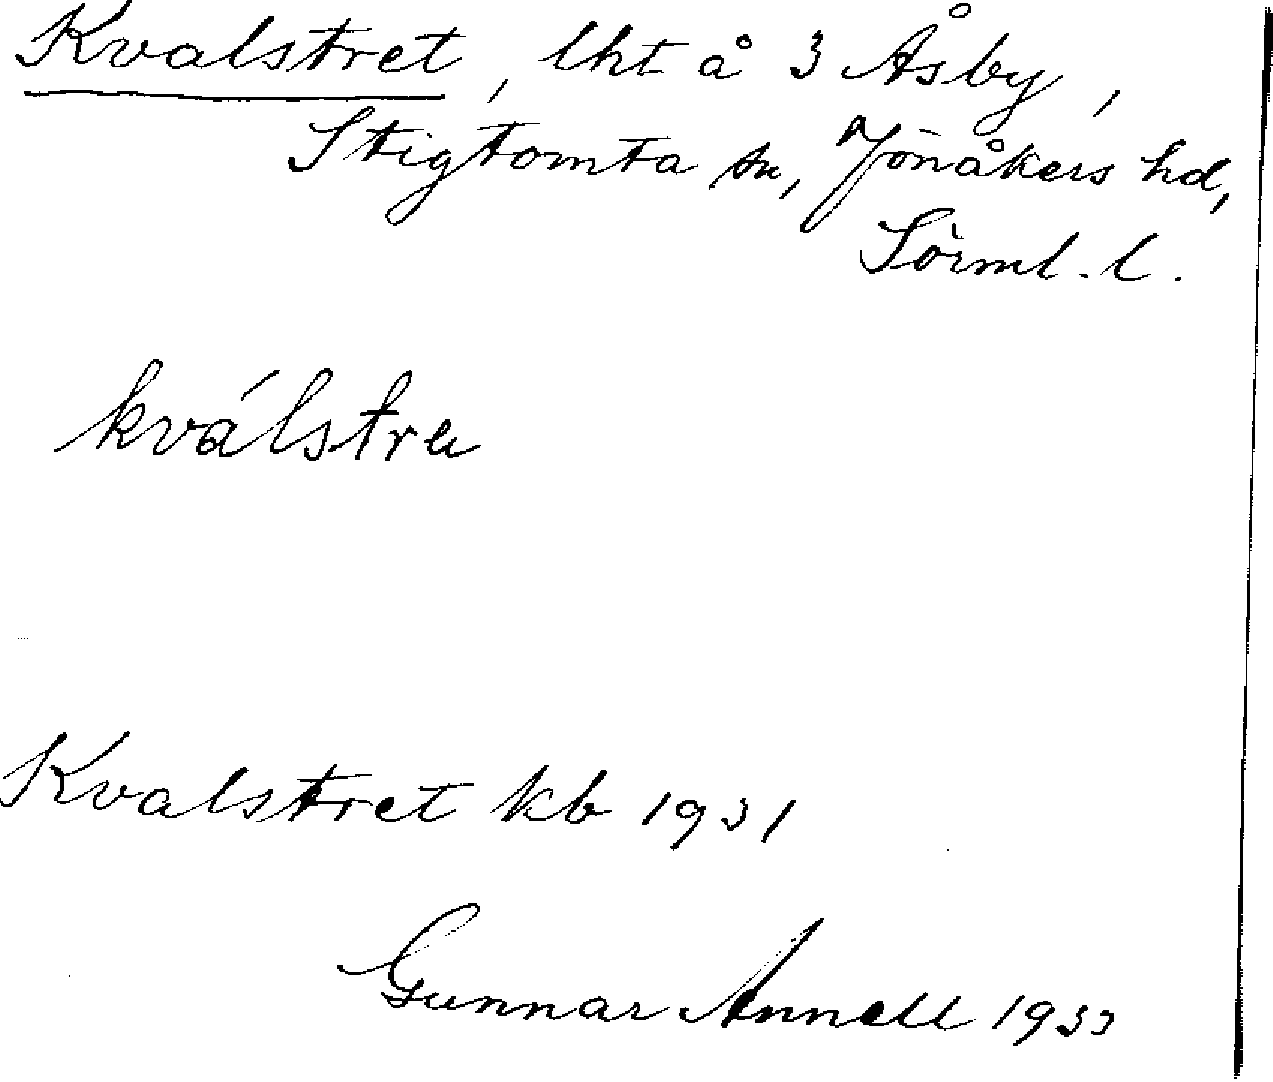 Kvalstret, lht å 3 Åsby,
Stigtomta sn, Jönåkers hd,
Sörml. l.
kválstra
Kvalstret kb 1931
Gunnar Annell 1933